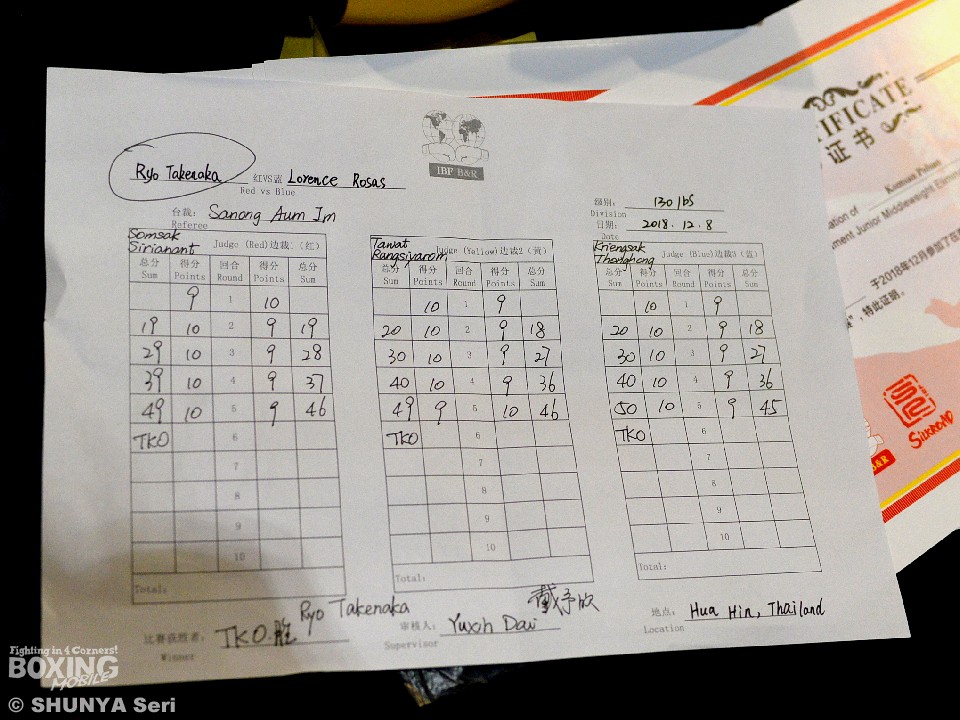 IBF B&R
Ryo Takenaka 红VS蓝 Lorence Rosas
Red vs Blue
台裁: Sanong Aum Im
Referee
级别: 130 lbs
Division
日期: 2018. 12. 8
Date
Somsak Sirianant Judge (Red)边裁1(红)
总分 得分 回合 得分 总分
Sum Points Round Points Sum
9 1 10
19 10 2 9 19
29 10 3 9 28
39 10 4 9 37
49 10 5 9 46
TKO 6
7
8
9
10
Total:
Tawat Rangsiyarom Judge (Yellow)边裁2(黄)
总分 得分 回合 得分 总分
Sum Points Round Points Sum
10 1 9
20 10 2 9 18
30 10 3 9 27
40 10 4 9 36
49 9 5 10 46
TKO 6
7
8
9
10
Total:
Kriengsak Thonghong Judge (Blue)边裁3(蓝)
总分 得分 回合 得分 总分
Sum Points Round Points Sum
10 1 9
20 10 2 9 18
30 10 3 9 27
40 10 4 9 36
50 10 5 9 45
TKO 6
7
8
9
10
Total:
比赛获胜者: TKO.胜 Ryo Takenaka
Winner
审核人: Yuxin Dai 戴予欣
Supervisor
地点: Hua Hin, Thailand
Location
TIFICATE
证书
ment Junior Middleweight Elimin
于2018年12月参加了在
特此证明。
SILKROAD
B&R
Fighting in 4 Corners!
BOXING
MOBILE
© SHUNYA Seri